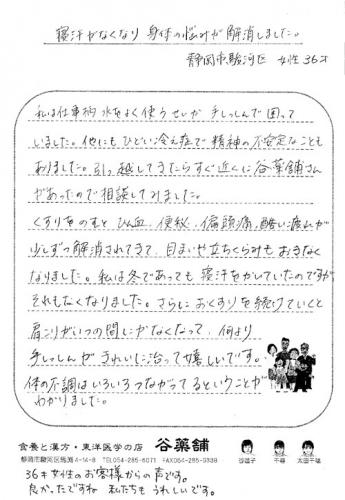 寝汗がなくなり 身体の悩みが解消しました。
静岡市駿河区 女性36才
私は仕事柄 水をよく使うせいか 手しっしんで困って
いました。他にもひどい冷え症で 精神の不安定なことも
ありました。引っ越してきたらすぐ近くに谷薬舗さん
があったので相談してみました。
くすりをのむと ひん血、便秘、偏頭痛、酷い疲れが
少しずつ解消されてきて、目まいや立ちくらみもおきなく
なりました。私は冬であっても 寝汗をかいていたのですが
それもなくなりました。さらにおくすりを続けていくと
肩こりがいつの間にかなくなって、何より
手しっしんが きれいに治って嬉しいです。
体の不調はいろいろつながってるということが
わかりました。
食養と漢方・東洋医学の店 谷薬舗
静岡市駿河区馬渕4-14-8 TEL054-285-6071 FAX054-285-9339
千尋 太田千穂
36才女性のお客様からの声です。
良かったですね 私たちもうれしいです。